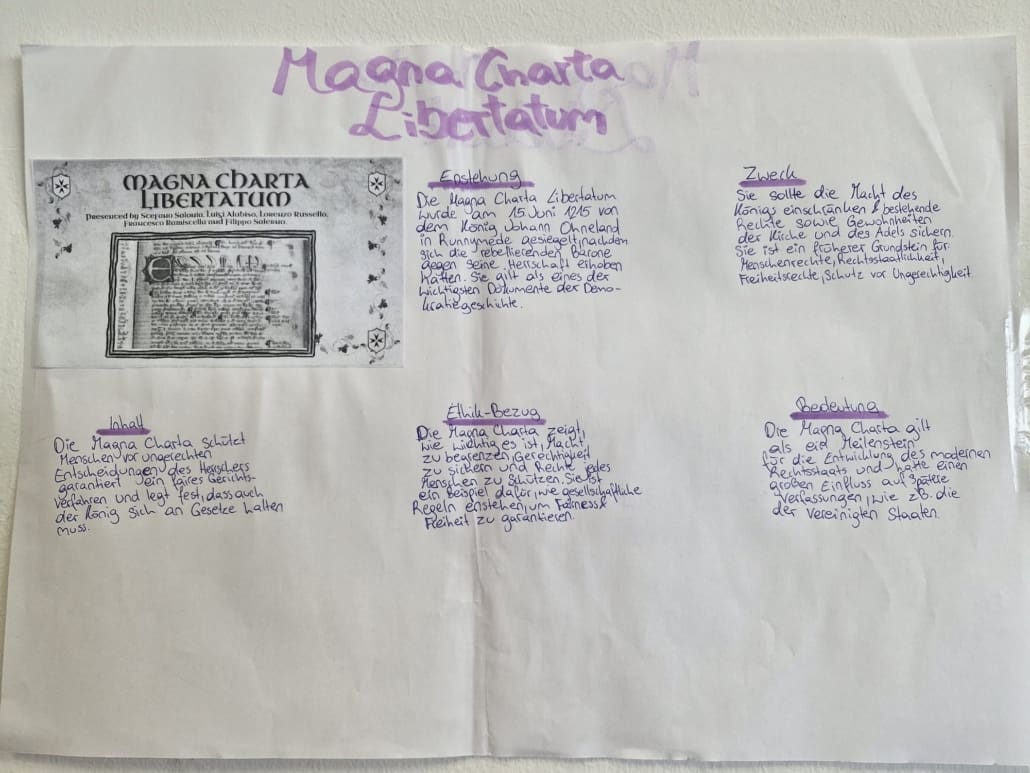 Magna Charta
Libertatum
MAGNA CHARTA
LIBERTATUM
Presented by Stefano Saloula, Luigi Alobiso, Lorenzo Russello,
Francesco Ramiscello and Filippo Salerno.
Enstehung
Die Magna Charta Libertatum
wurde am 15 Juni 1215 von
dem König Johann Ohneland
in Runnymede gesiegelt, nachdem
sich die rebellierenden Barone
gegen seine Herrschaft erhoben
hatten. Sie gilt als eines der
wichtigsten Dokumente der Demo-
kratiegeschichte.
Zweck
Sie sollte die Macht des
Königs einschränken & bestehende
Rechte sowie Gewohnheiten
der Kirche und des Adels sichern.
Sie ist ein früherer Grundstein für
Menschenrechte, Rechtsstaatlichkeit,
Freiheitsrechte, Schutz vor Ungerechtigkeit
Inhalt
Die Magna Charta schützt
Menschen vor ungerechten
Entscheidungen des Herrschers
garantiert ein faires Gerichts-
verfahren und legt fest, dass auch
der König sich an Gesetze halten
muss.
Ethik-Bezug
Die Magna Charta zeigt,
wie wichtig es ist, Macht
zu begrenzen, Gerechtigkeit
zu sichern und Rechte jedes
Menschen zu schützen. Sie ist
ein Beispiel dafür, wie gesellschaftliche
Regeln enstehen, um Fairness &
Freiheit zu garantieren.
Bedeutung
Die Magna Charta gilt
als eid Meilenstein
für die Entwicklung des modernen
Rechtsstaats und hatte einen
großen Einfluss auf spätere
Verfassungen, wie z.B. die
der Vereinigten Staaten.